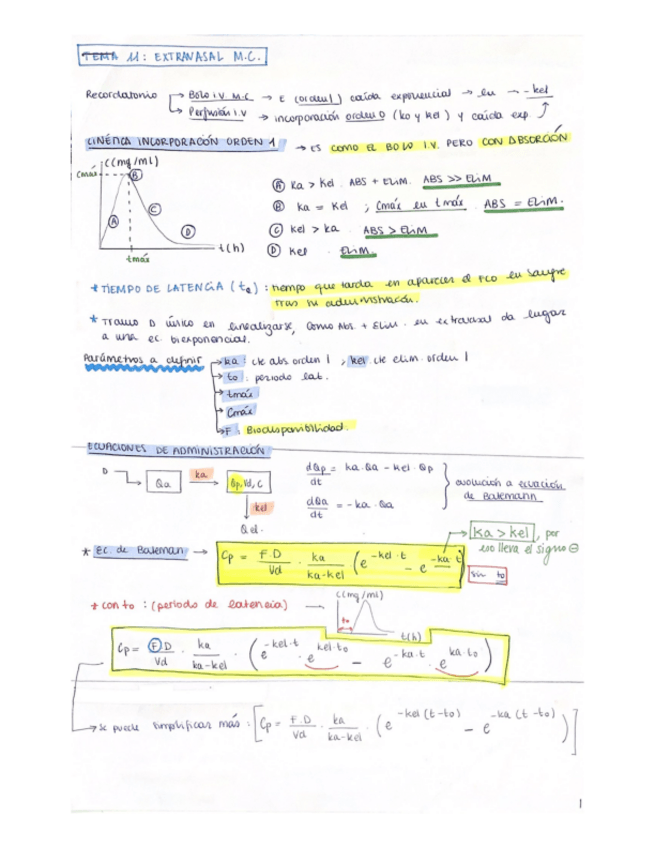 TEMA 11: EXTRAVASAL M.C.
Recordatorio → Bolo I.V. M.C → E (orden 1) caída exponencial → ln → -kel
→ Perfusión I.V → incorporación orden 0 (k0 y kel) y caída exp
CINÉTICA INCORPORACIÓN ORDEN 1 → ES COMO EL BOLO I.V. PERO CON ABSORCIÓN
C(mg/ml)
Cmáx
A
B
C
D
tmáx
t(h)
A ka > kel. ABS + ELIM. ABS >> ELIM
B ka = kel ; Cmáx en tmáx. ABS = ELIM.
C kel > ka. ABS > ELIM
D kel. ELIM.
* TIEMPO DE LATENCIA (t0): tiempo que tarda en aparecer el PCO en sangre
tras su administración.
* Tramo D único en linealizarse, como Abs. + ELIM. en extravasal da lugar
a una ec. biexponencial.
Parámetros a definir → ka: cte abs. orden 1 ; kel cte elim. orden 1
→ to: periodo lat.
→ tmáx
→ Cmáx
→ F: Biodisponibilidad.
ECUACIONES DE ADMINISTRACIÓN
D → Qa ka → Qp, Vd, C
kel
Qel.
dQp/dt = ka·Qa - kel·Qp
dQa/dt = -ka·Qa
evolución a ecuación
de Batemann
* EC de Bateman → Cp = F.D/Vd · ka/ka-kel (e^-kel·t - e^-ka·t)
ka > kel, por
eso lleva el signo ⊖
sin to
* con to: (periodo de latencia)
C(mg/ml)
to
t(h)
Cp = F.D/Vd · ka/ka-kel · (e^-kel·t · e^kel·to - e^-ka·t · e^ka·to)
→ Se puede simplificar más: [Cp = F.D/Vd · ka/ka-kel · (e^-kel(t-to) - e^-ka(t-to))]
1